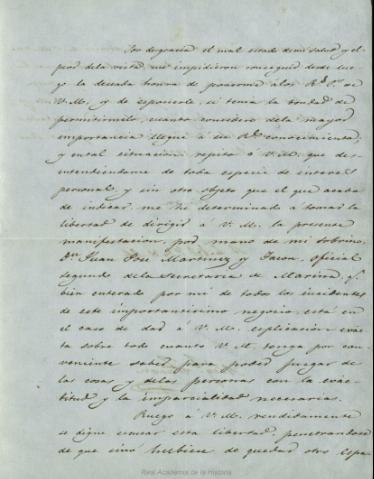 Por desgracia el mal estado de mi salud y el
peso de la vista me impidieron conseguir desde lue-
go la deseada honra de ponerme á los R.s P.s de
V. M., y de esponerle, si tenia la bondad de
permitirmelo, cuanto considero de la mayor
importancia llegue á su R.l conocimiento;
y en tal situacion repito á V. M. que des-
entendiendome de toda especie de interes
personal, y sin otro objeto que el que acabo
de indicar, me he determinado á tomar la
libertad de dirigir á V. M. la presente
manifestacion, por mano de mi sobrino,
D.n Juan José Martinez y oficial
segundo de la Secretaria de Marina, q.e
bien enterado por mi de todos los incidentes
de este importantisimo negocio, está en
el caso de dar á V. M. esplicacion exác-
ta sobre todo cuanto V. M. tenga por con-
veniente saber para poder juzgar de
las cosas y de las personas con la exác-
titud y la imparcialidad necesarias.
Ruego á V. M. rendidamente
se digne escusar esta libertad, penetrandose
de que sinó hubiese de quedar otro espe-
Real Academia de la Historia